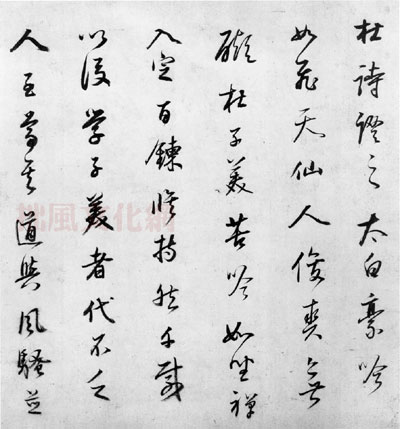 杜詩證之太白豪吟
如飛天仙人俊爽無
礙杜子美苦吟如坐禪
入定百鍊脩持然千歲
以後學子美者代不乏
人尊其道與風騷並
拙風文化網